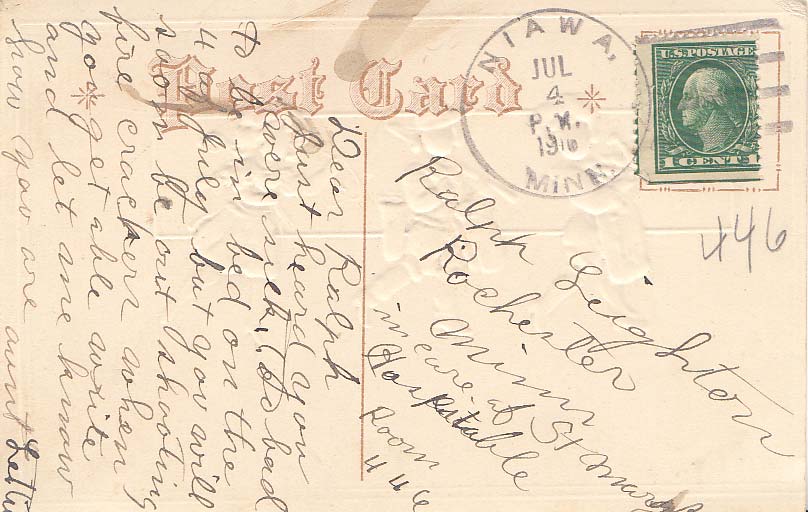 Post Card
NIAWA,
JUL
4
P.M.
1916
MINN.
U.S. POSTAGE
1 CENT 1
446
Dear Ralph
Just heard you
were sick. Its bad
to be in bed on the
4 of July but you will
soon be out shooting
fire crackers when
you get able write
and let me know
how you are aunt Lettie
Ralph Leighton
Rochester
Minn
in care of St Marys
Hospitable
Room
446